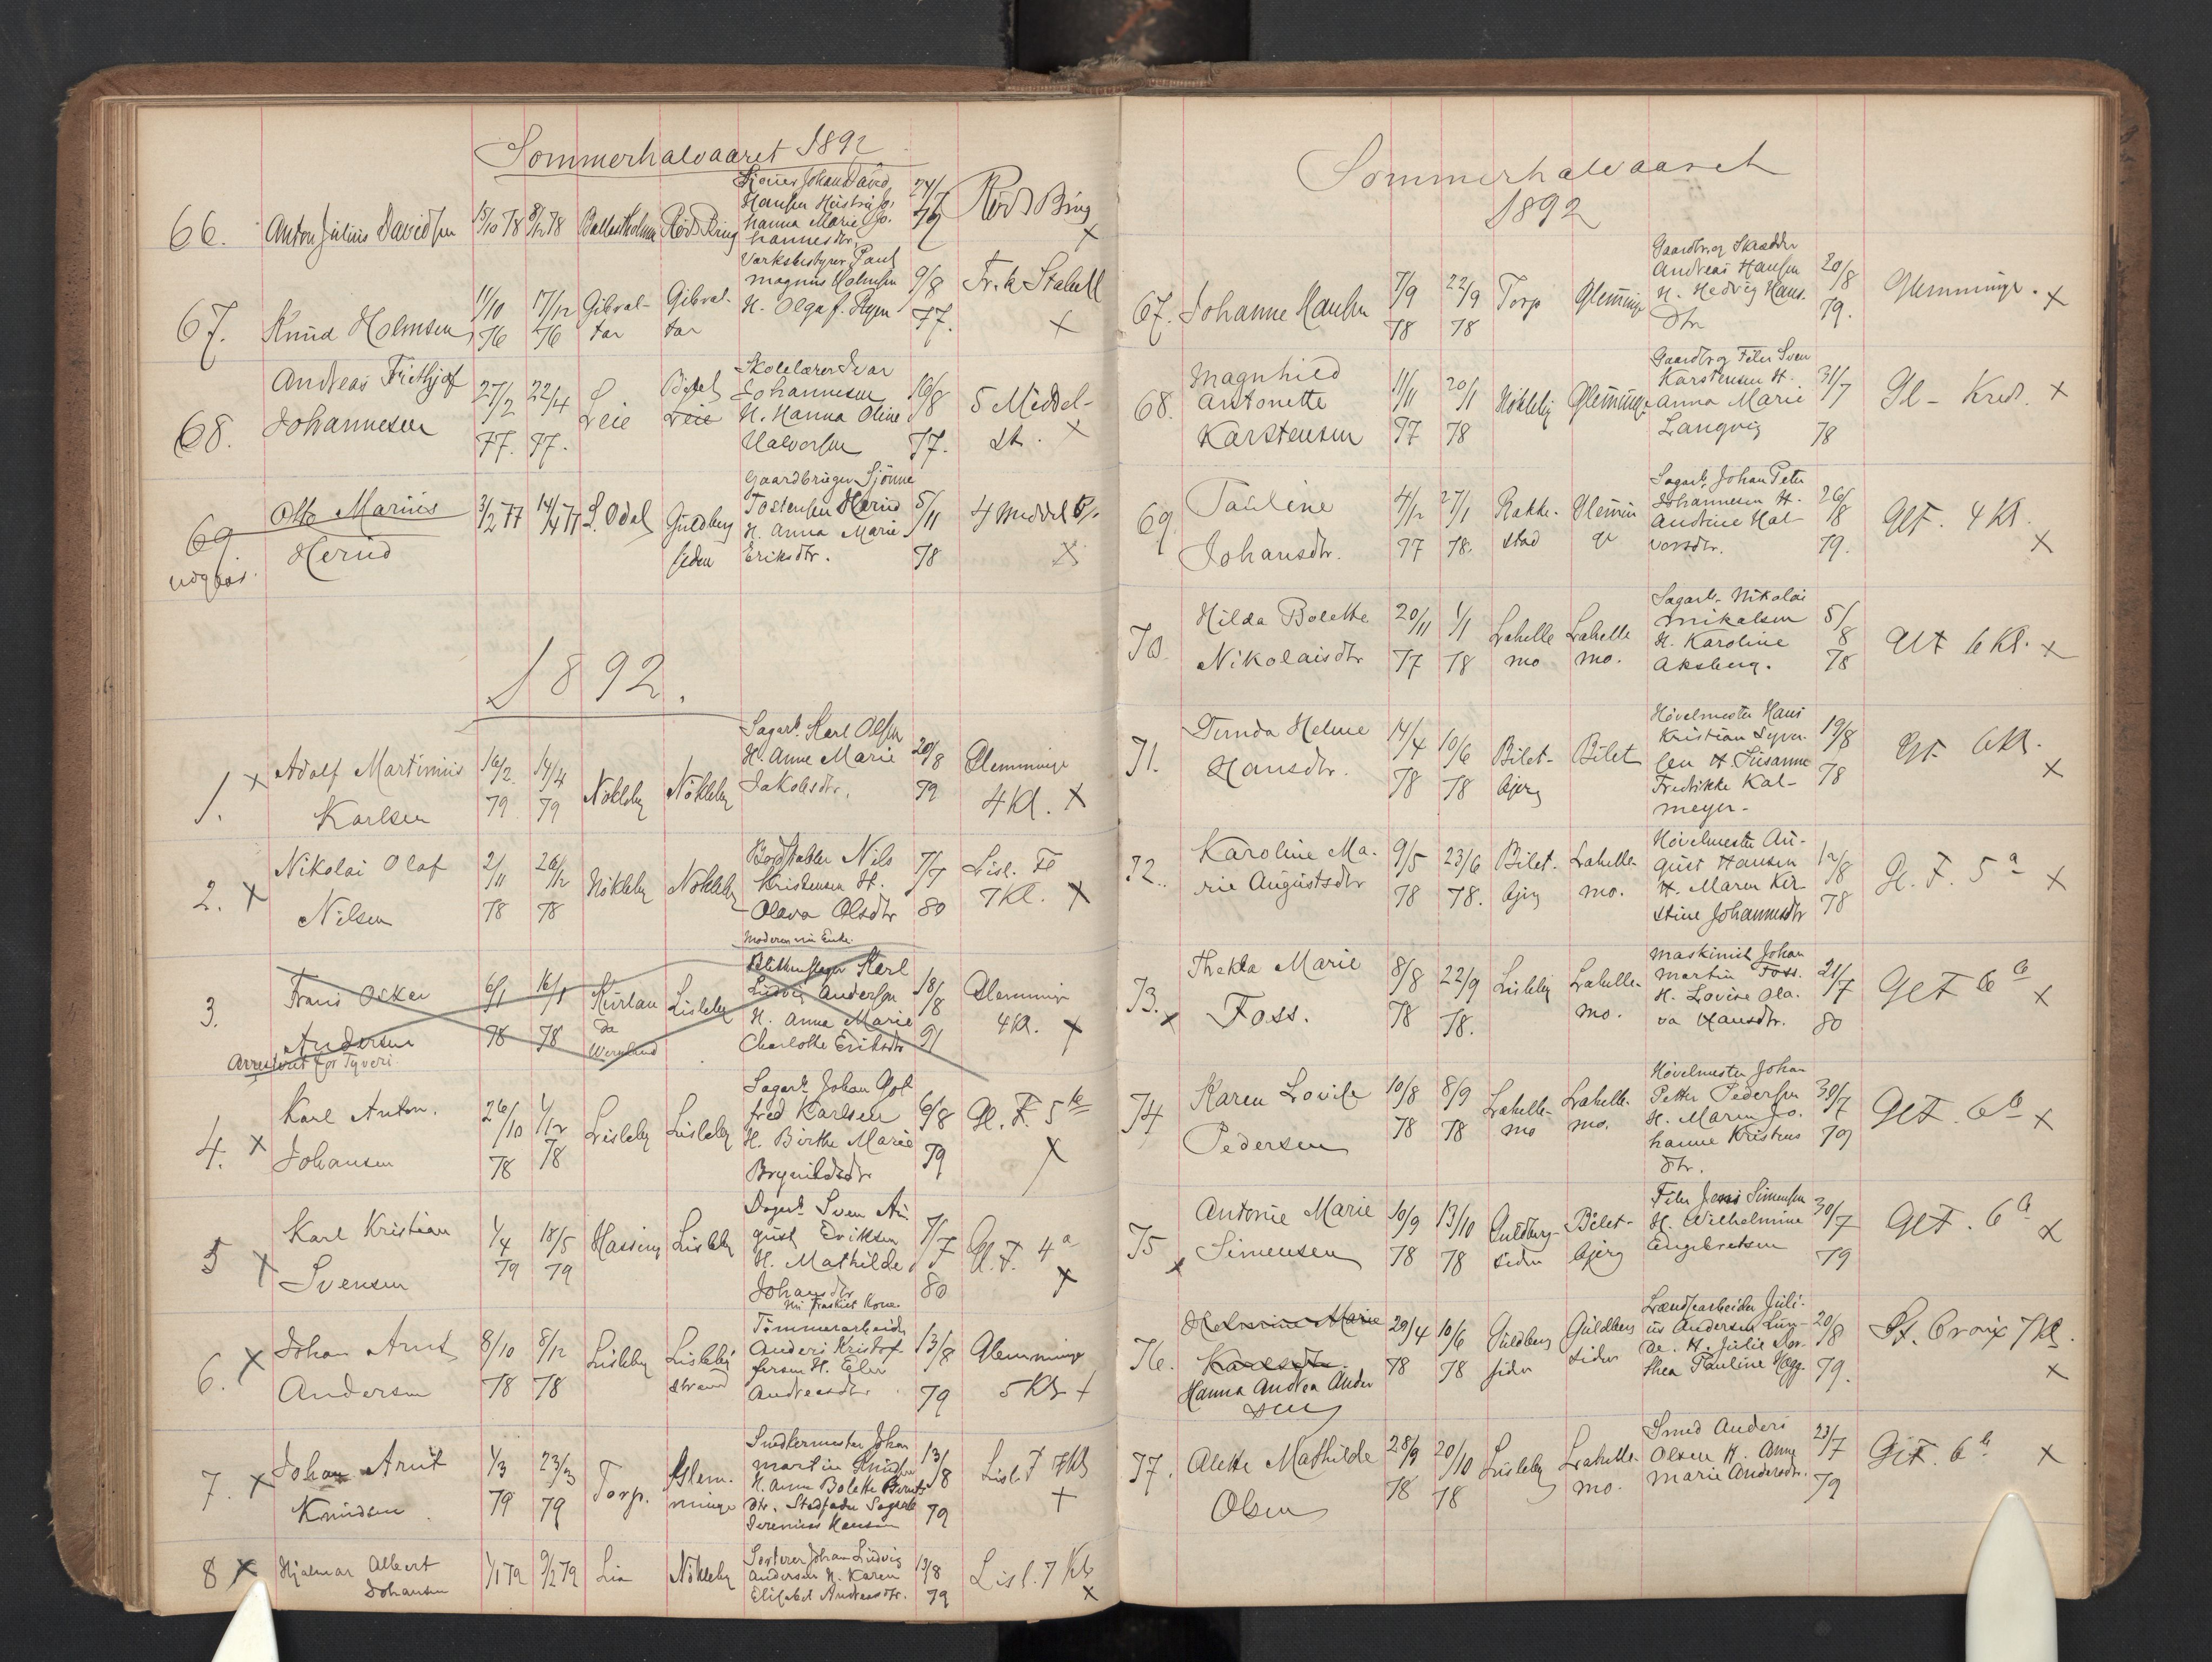 Sommerhalvaaret 1892
66. Anton Julius Davidsen 15/10 78 8/12 78 Rød Brug Johan David Hansen Hustru Johanna Marie Johannesdtr. 24/7 Rød Brug x
67. Knud Holmsen 11/10 76 17/12 76 Gibraltar Gibraltar Værksbestyrer Paul Magnus Holmsen H. Olga f. 9/8 77. Frk Stabell x
68. Andreas Frithjof Johannesen 27/2 77. 22/4 77. Leie Leie Skolelærer Ivar Johannesen H. Hanna Oline Halvorsen 16/8 77. 5 Middelst. x
69. udgaar. Otto Marius Herud 3/2 77 14/4 77 S. Odal Guldbergsiden Gaardbruger Sjønne Tostensen Herud H. Anna Marie Eriksdtr. 5/11 78 4 Middel x
1892.
1. x Adolf Martinius Karlsen 16/2. 79 14/4 79 Nökleby Nökleby Sagarb. Karl Olsen H. Anne Marie Jakobsdtr. 20/8 79 Glemminge 4 Kl. x
2. x Nikolai Olaf Nilsen 2/11 78 26/12 78 Nökleby Nökleby Nils Kristensen H. Olava Olsdtr 7/7 80 Lisl. F 7 Kl. x
Moderen nu Enke.
3. Frans Oskar Andersen 6/1 78 16/1 78 Lisleby Karl Ludvig Andersen H. Anna Marie Charlotte Eriksdtr 18/8 91 Glemminge 4 Kl. x
Arresteret for Tyveri.
4. x Karl Anton. Johansen 26/10 78 1/12 78 Lisleby Lisleby Sagarb. Johan Gotfred Karlsen H. Birthe Marie Brynildsdtr 6/8 79 Gl. F. 5 b x
5 x Karl Kristian Svensen 1/4 79 18/5 79 Lisleby Sven August Eriksen H. Mathilde Johansdtr 7/7 80 Gl. F. 4 a x
6. x Johan Arnt Andersen 8/10 78 8/12 78 Lisleby Lisleby strand Tømmerarbeider Anders Kristoffersen H. Elen Andreasdtr 13/8 79 Glemminge 5 Kl x
7. x Johan Arnt Knudsen 1/3 79 23/3 79 Torp. Glemminge Snedkermester Johan Martin Knudsen H. Anne Bolette Berntsdtr. Stedfader Sagarb. Hansen 13/8 79 Lisl. F 7 Kl x
8 x Hjalmar Albert Johansen 1/1 79 9/2 79 Lie Nökleby Sorterer Johan Ludvig Andersen H. Karen Elisabet Andreasdtr. 13/8 79 Lisl. 7 Kl x
Sommerhalvaaret
1892
67. Johanne Hansen 7/9 78 22/9 78 Torp Glemminge Gaardbr. og Skrædder Andreas Hansen H. Hedvig Hansdtr 20/8 79. Glemminge. x
68. Magnhild Antonette Karstensen 11/11 77 20/1 78 Nökleby Glemminge Gaardbr og Filer Sven Karstensen H. Anna Marie Langvig 31/7 78 Gl - Kred. x
69. Pauline Johansdtr. 4/12 77 27/1 78. Rakkestad Glemminge Sagarb. Johan Peter Johannesen H. Andrine Halvorsdtr. 26/8 79. Gl F. 4 Kl. x
70. Hilda Bolette Nikolaisdtr 20/11 77 1/1 78 Lahellemo Lahellemo. Sagarb. Nikolai Mikalsen H. Karoline Aksberg. 5/8 78 Gl F 6 Kl. x
71. Hansdtr. 14/4 78 10/6 78 Biletbjerg Bilet Høvelmester Hans Kristian Syversen H. Susanne Fredrikke Kalmeyer- 19/8 78 Gl F 6 Kl. x
72. Karoline Marie Augustsdtr 9/5 78 23/6 78. Biletbjerg Lahellemo. Høvelmester August Hansen H. Maren Kirstine Johannesdtr 78 Gl. F. 5 a x
73. x Thekla Marie Foss. 8/8 78 22/9 78. Lisleby Lahellemo. Maskinist Johan Martin Foss. H. Lovise Olava Hansdtr. 21/7 80 Gl F 6 b x
74 Karen Lovise Pedersen 10/8 78 8/9 78 Lahellemo Lahellemo. Høvelmester Johan Petter Pedersen H. Maren Johanne Kristensdtr. 30/7 79 Gl F. 6 b x
75 x Antonie Marie Simensen 10/9 78 13/10 78 Guldbergsiden Biletbjerg Filer Jens Simensen H. Wilhelmine Engebretsen 30/7 79 Gl F. 6 b x
76. Karlsdtr. Hanna Andrea Andersen 29/4 78 10/6 78 Guldbergsiden Guldbergsiden Julius Andersen H. Julie Dorthea Pauline Hegg. 20/8 79. St. Croix 7 Kl. x
77. Alette Mathilde Olsen 28/9 78 20/10 78 Lisleby Lahellemo. Smed Anders Olsen H. Anne Marie Andersdtr. 23/7 79 Gl F. 6 b x